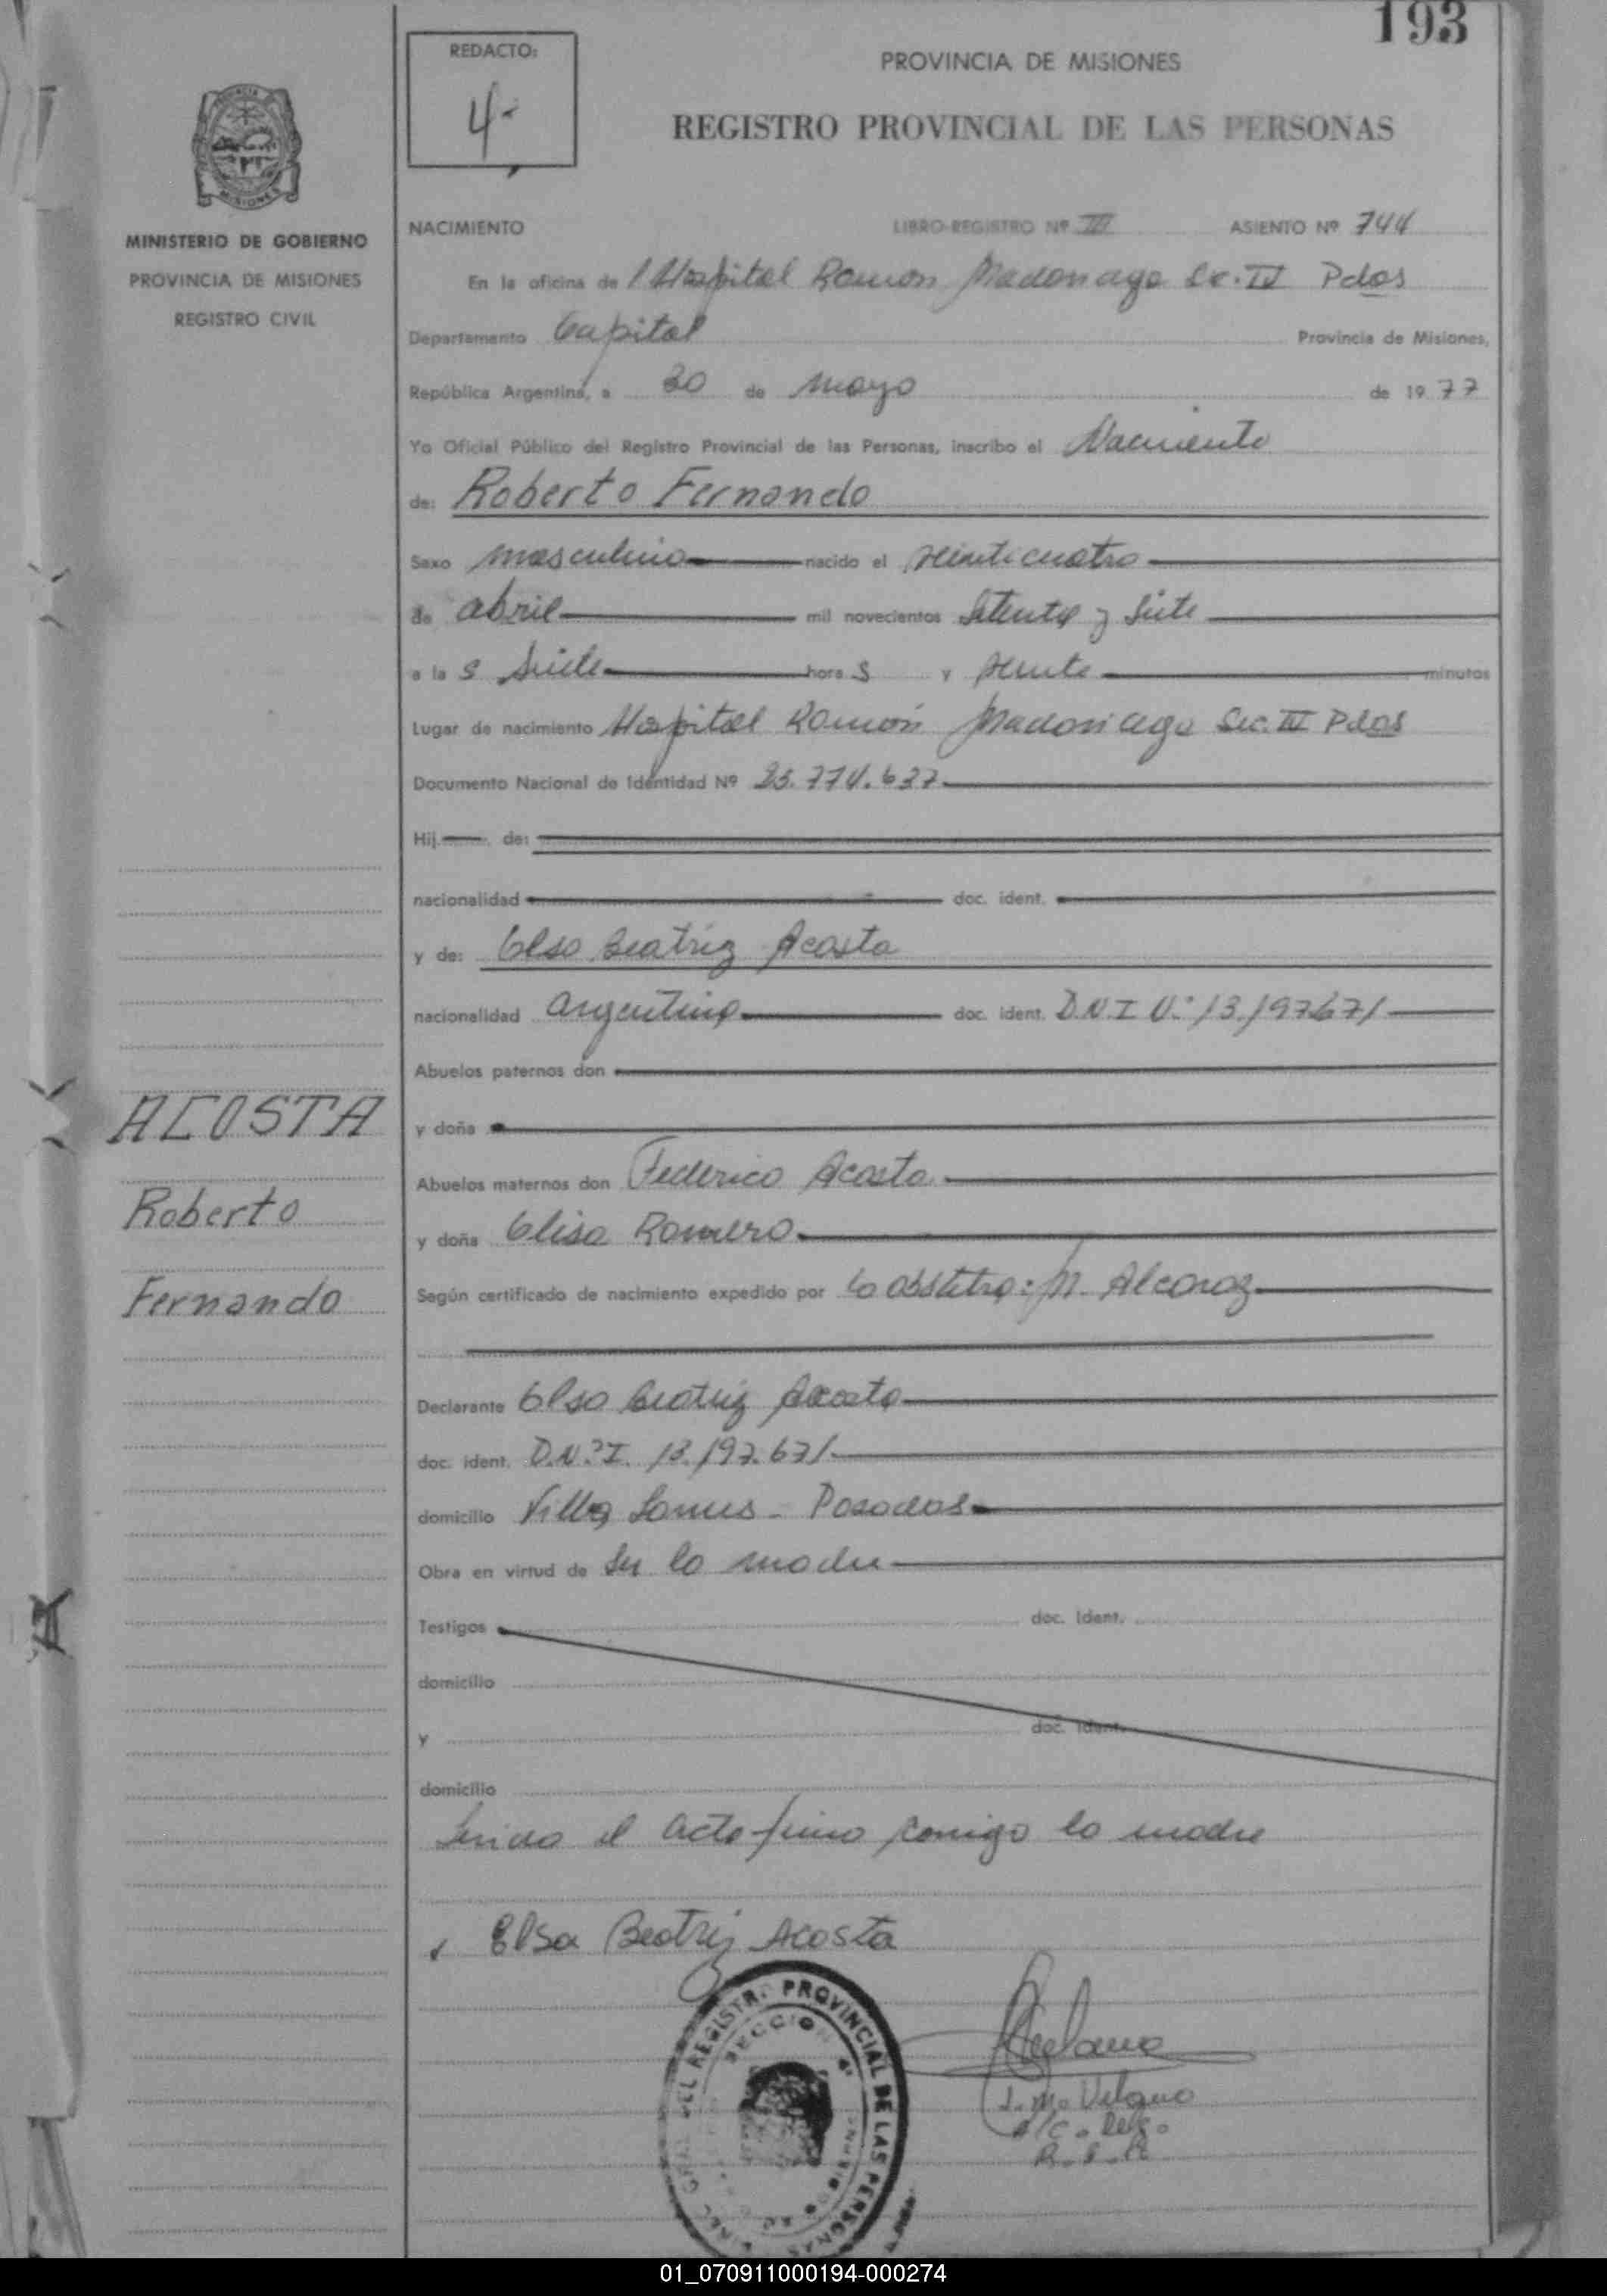 193
REDACTO:
4-
PROVINCIA DE MISIONES
REGISTRO PROVINCIAL DE LAS PERSONAS
MISIONES
MINISTERIO DE GOBIERNO
PROVINCIA DE MISIONES
REGISTRO CIVIL
NACIMIENTO LIBRO-REGISTRO Nº III ASIENTO Nº 744
En la oficina de l Hospital Ramón Madariaga Sec. IV Pdas
Departamento Capital Provincia de Misiones,
República Argentina, a 30 de mayo de 1977
Yo Oficial Público del Registro Provincial de las Personas, inscribo el Nacimiento
de: Roberto Fernando
Sexo masculino nacido el veinticuatro
de abril mil novecientos setenta y siete
a la s siete hora s y veinte minutos
Lugar de nacimiento Hospital Ramón Madariaga Sec. IV Pdas
Documento Nacional de Identidad Nº 25.774.637
Hij de:
nacionalidad doc. ident.
y de: Elsa Beatriz Acosta
nacionalidad argentina doc. ident. D.N.I Nº 13.197.671
Abuelos paternos don
y doña
ACOSTA
Abuelos maternos don Federico Acosta
Roberto
y doña Elisa Romero
Fernando
Según certificado de nacimiento expedido por la obstetra: M. Alcaraz
Declarante Elsa Beatriz Acosta
doc. ident. D.N.I. 13.197.671
domicilio Villa Lanus - Posadas
Obra en virtud de ser la madre
Testigos doc. Ident.
domicilio
y doc. Ident.
domicilio
Leida el acta firma conmigo la madre
Elsa Beatriz Acosta
DEL REGISTRO PROVINCIAL DE LAS PERSONAS
SECCION 4ª